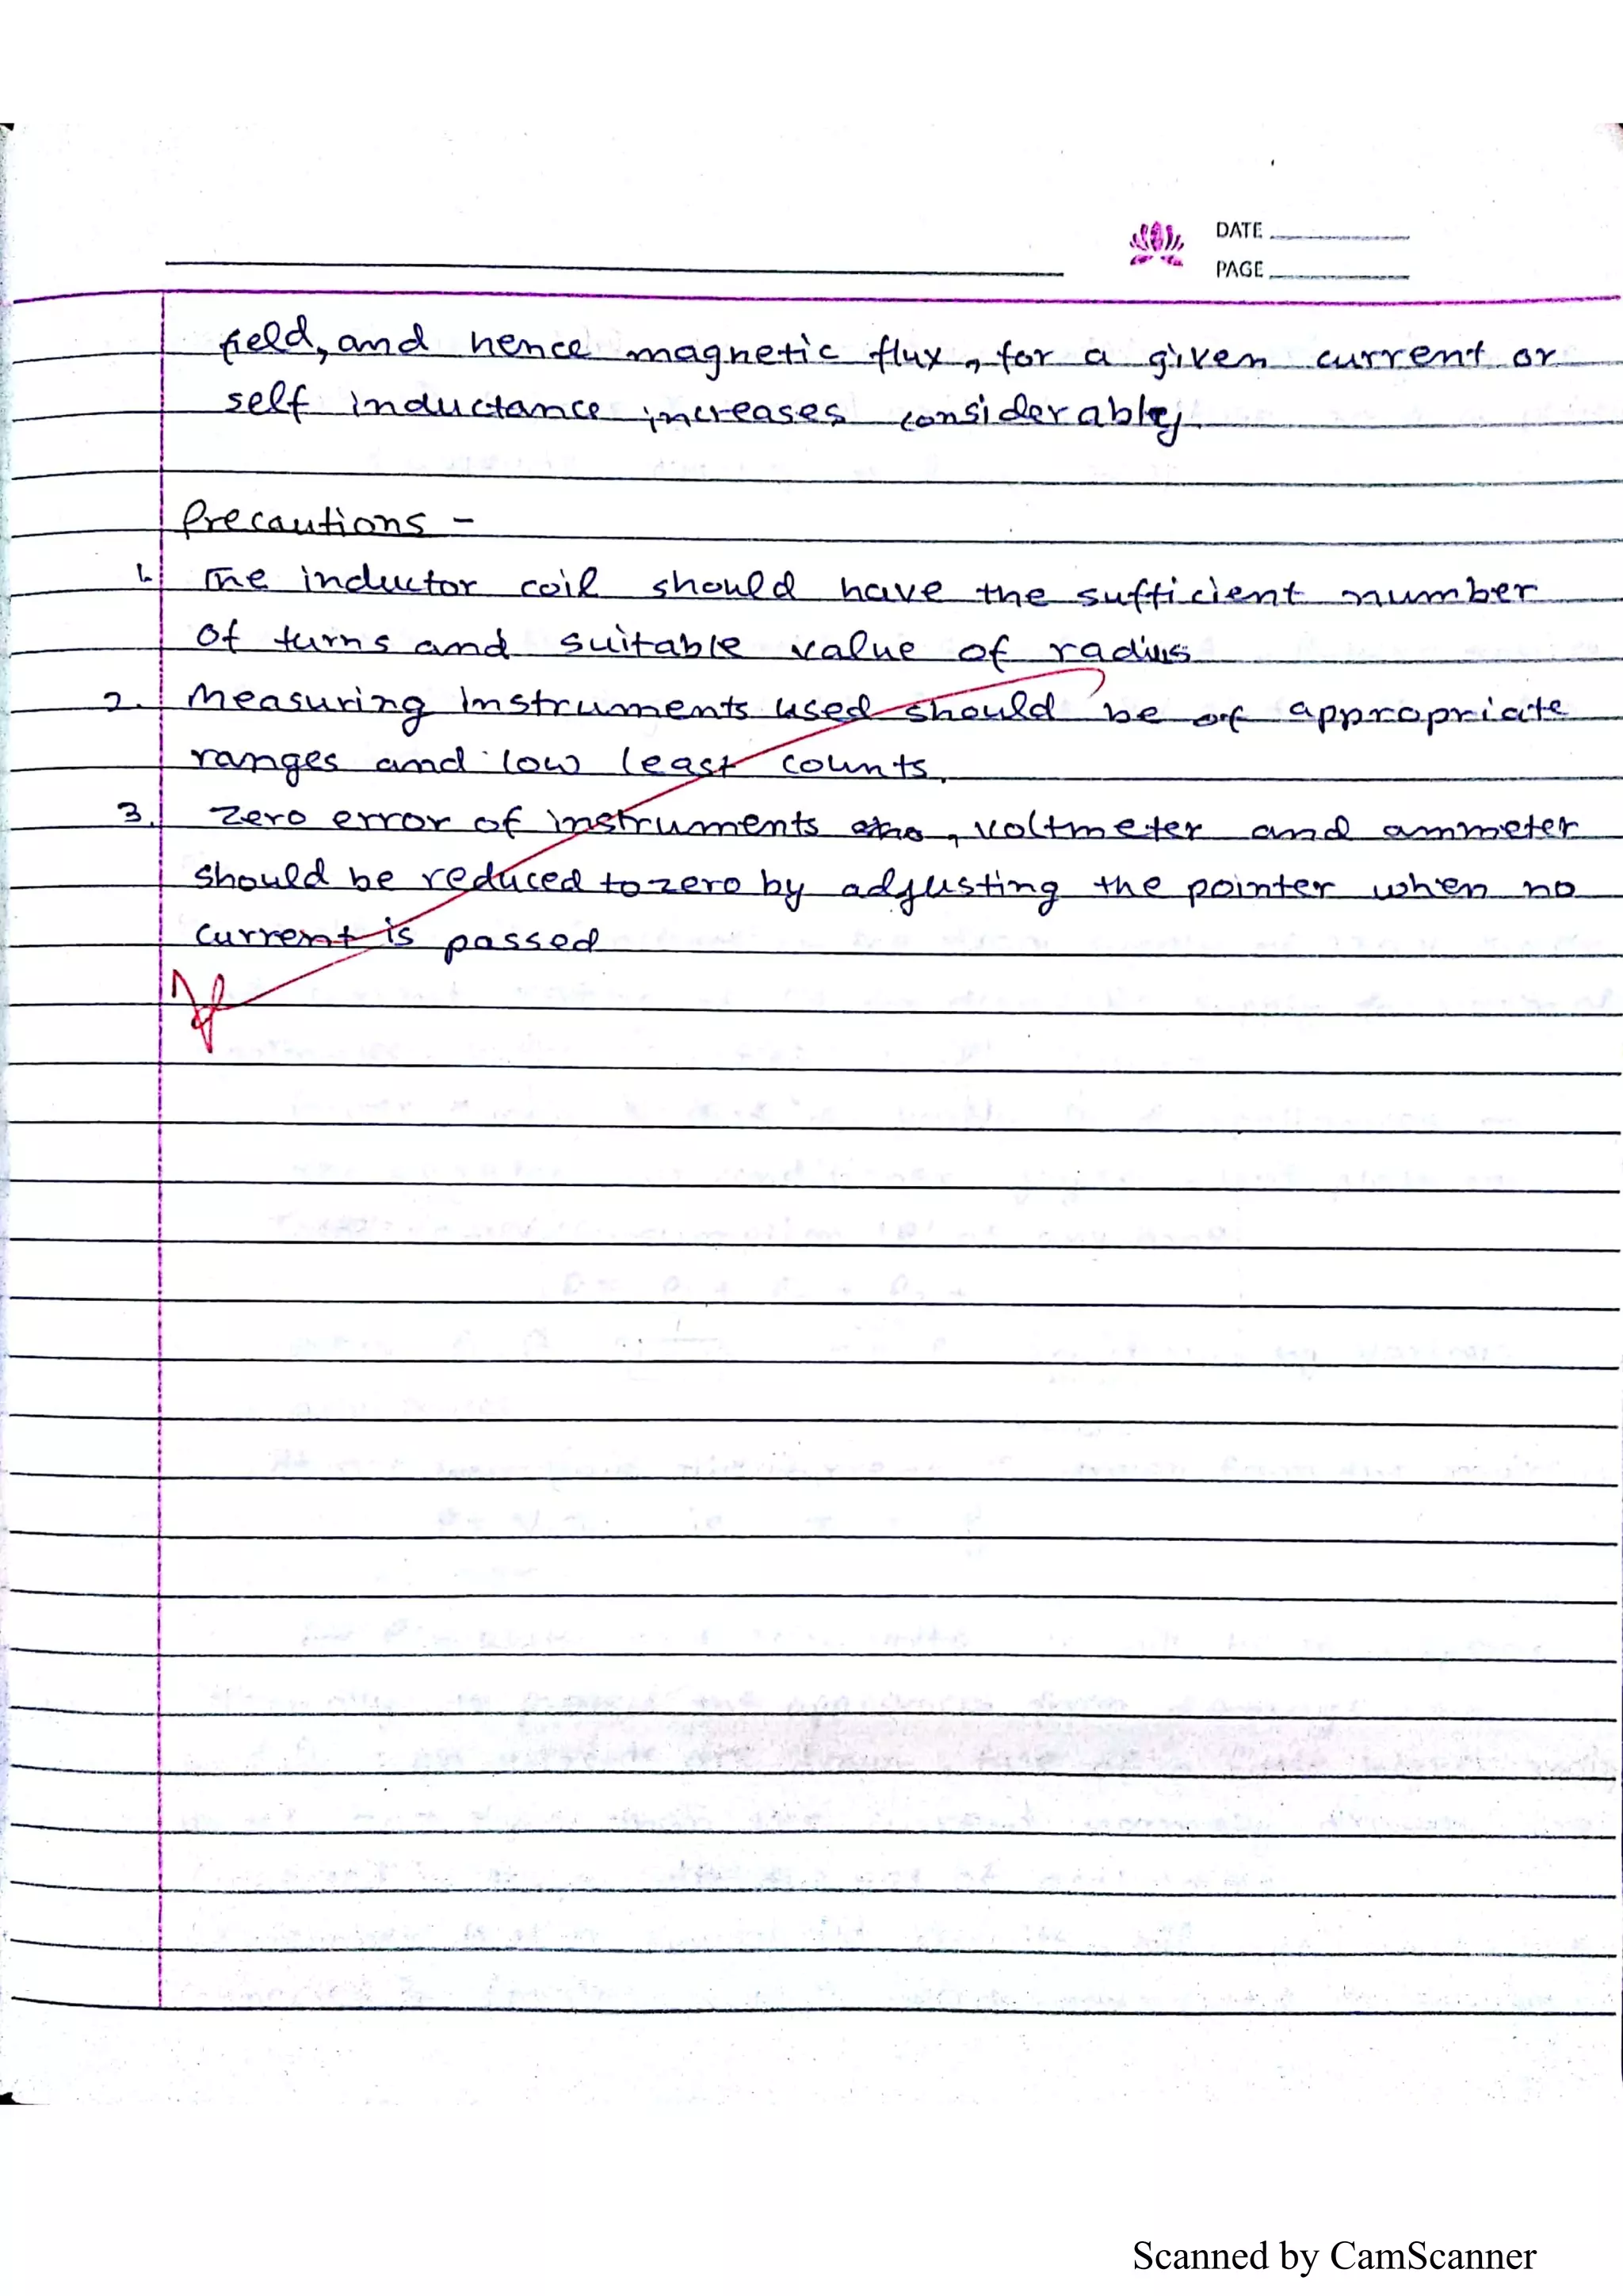 DATE
PAGE
field, and hence magnetic flux, for a given current or
self inductance increases considerably
Precautions -
1. The inductor coil should have the sufficient number
of turns and suitable value of radius
2. Measuring Instruments used should be of appropriate
ranges and low least counts.
3. Zero error of instruments , voltmeter and ammeter
should be reduced to zero by adjusting the pointer when no
current is passed
Scanned by CamScanner